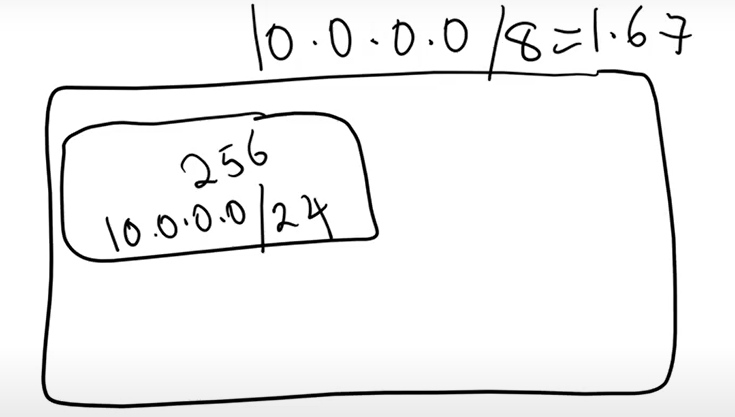 10.0.0.0/8=1.67
256
10.0.0.0/24